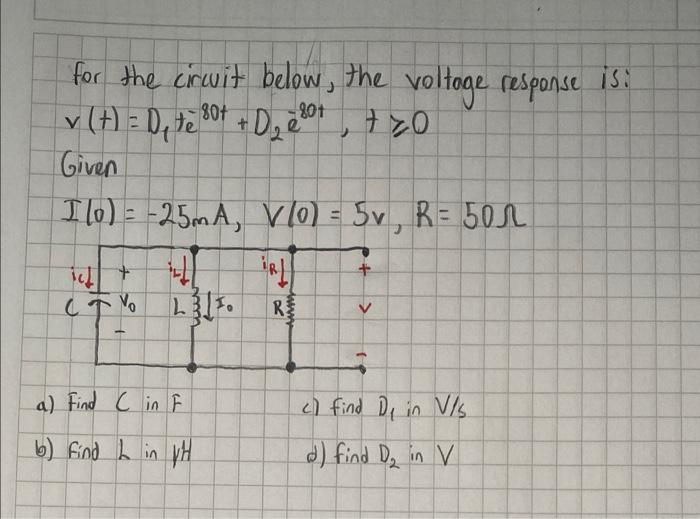 for the circuit below, the voltage response is:
v(t) = D₁ te⁻⁸⁰ᵗ + D₂ e⁻⁸⁰ᵗ , t ≥ 0
Given
I(0) = -25mA, V(0) = 5v, R = 50Ω
ic↓ + iL↓ iR↓ +
C V₀ L ↓I₀ R v
- -
a) Find C in F
c) find D₁ in V/s
b) Find L in μH
d) find D₂ in V